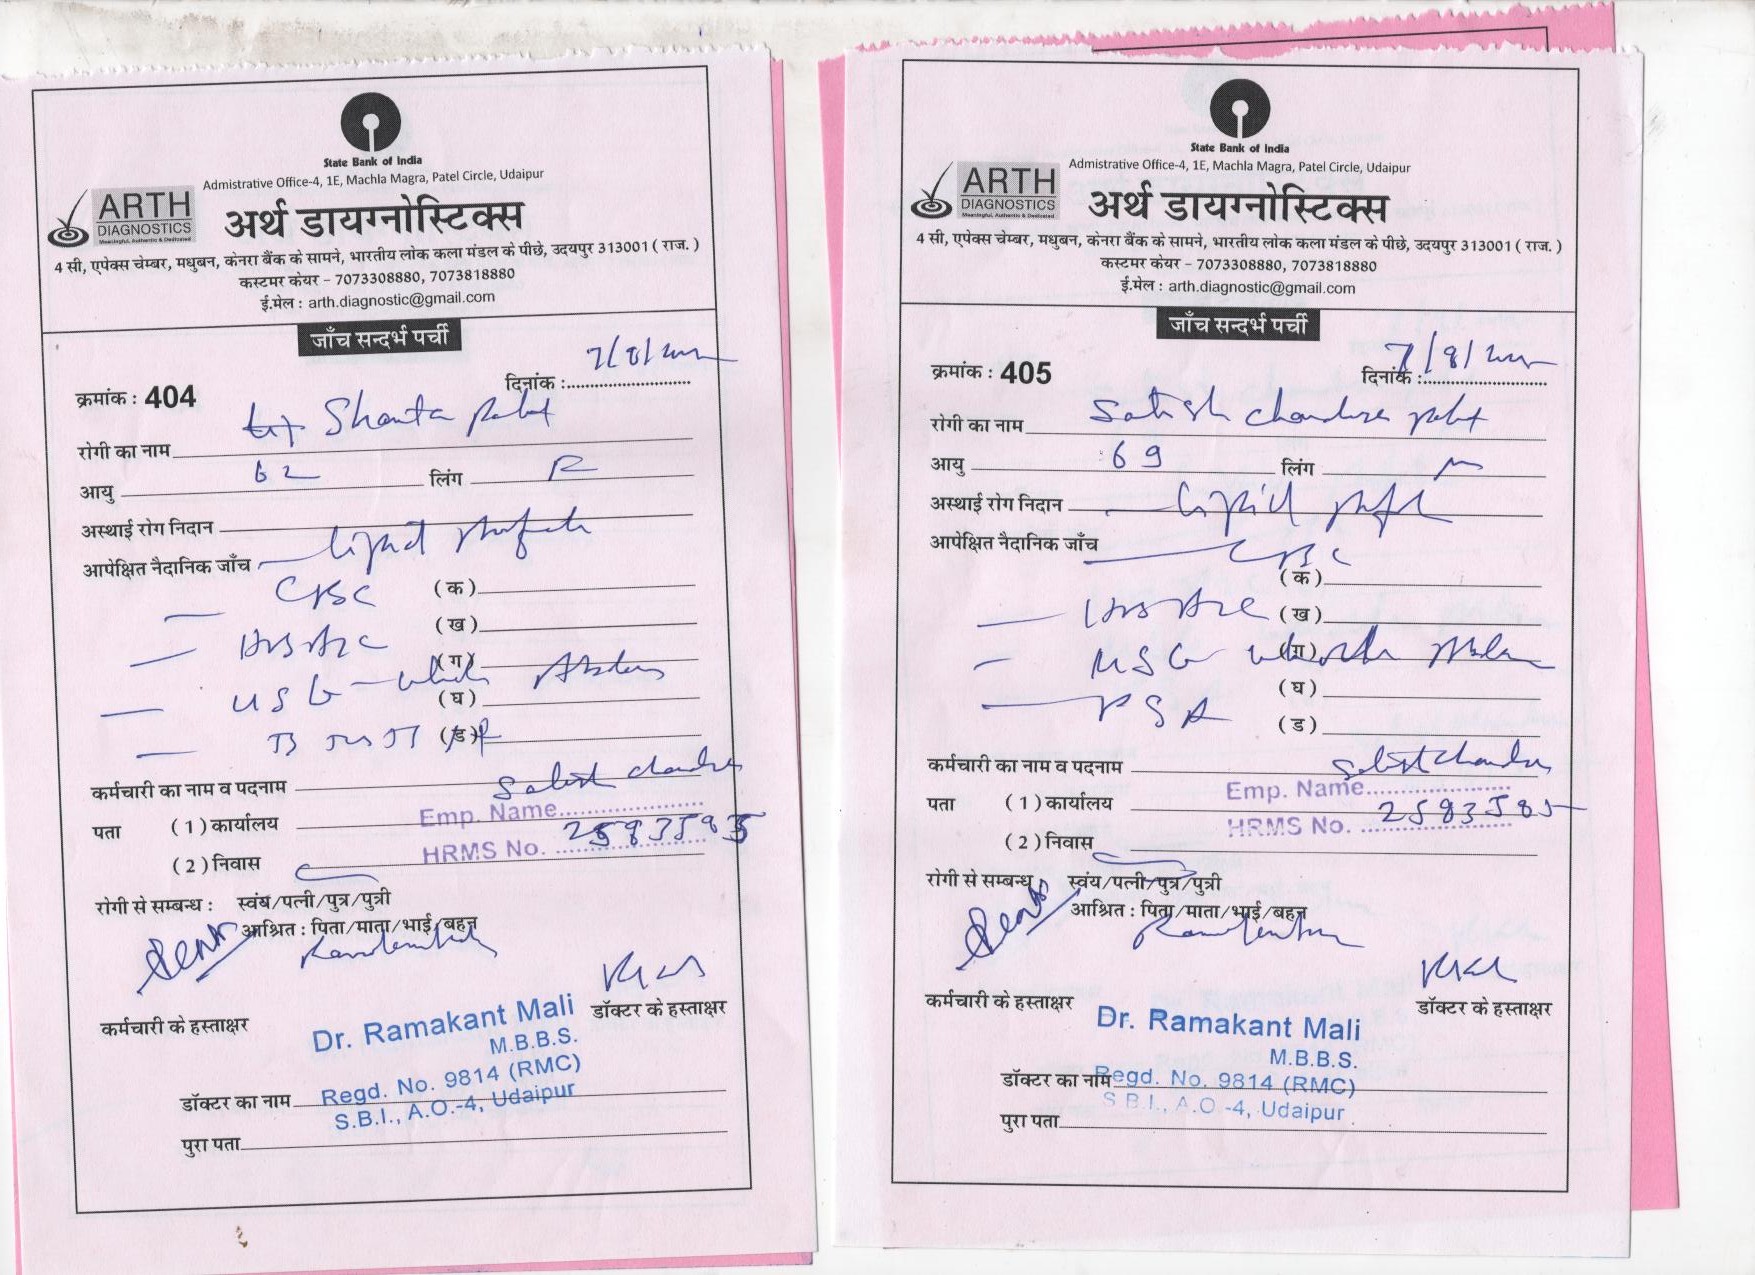 State Bank of India
Admistrative Office-4, 1E, Machla Magra, Patel Circle, Udaipur
ARTH
DIAGNOSTICS
Meaningful, Authentic & Dedicated
अर्थ डायग्नोस्टिक्स
4 सी, एपेक्स चेम्बर, मधुबन, केनरा बैंक के सामने, भारतीय लोक कला मंडल के पीछे, उदयपुर 313001 ( राज. )
कस्टमर केयर – 7073308880, 7073818880
ई.मेल : arth.diagnostic@gmail.com
जाँच सन्दर्भ पर्ची
क्रमांक : 404
दिनांक :
रोगी का नाम Shanta
आयु 62 लिंग F
अस्थाई रोग निदान
आपेक्षित नैदानिक जाँच – Lipid profile
– CBC ( क )
( ख )
– HBA1C
( ग )
– USG – whole Abdomen
( घ )
( ड )
कर्मचारी का नाम व पदनाम Satish Chandra
पता ( 1 ) कार्यालय
Emp. Name
( 2 ) निवास
HRMS No. 2583585
रोगी से सम्बन्ध : स्वंय/पत्नी/पुत्र/पुत्री
आश्रित : पिता/माता/भाई/बहन
कर्मचारी के हस्ताक्षर
डॉक्टर के हस्ताक्षर
Dr. Ramakant Mali
M.B.B.S.
डॉक्टर का नाम Regd. No. 9814 (RMC)
S.B.I., A.O.-4, Udaipur
पुरा पता
State Bank of India
Admistrative Office-4, 1E, Machla Magra, Patel Circle, Udaipur
ARTH
DIAGNOSTICS
Meaningful, Authentic & Dedicated
अर्थ डायग्नोस्टिक्स
4 सी, एपेक्स चेम्बर, मधुबन, केनरा बैंक के सामने, भारतीय लोक कला मंडल के पीछे, उदयपुर 313001 ( राज. )
कस्टमर केयर – 7073308880, 7073818880
ई.मेल : arth.diagnostic@gmail.com
जाँच सन्दर्भ पर्ची
क्रमांक : 405
दिनांक :
रोगी का नाम Satish Chandra
आयु 69 लिंग M
अस्थाई रोग निदान – Lipid profile
आपेक्षित नैदानिक जाँच – CBC
( क )
– HBA1C ( ख )
– USG whole Abdomen
( ग )
( घ )
– PSA
( ड )
कर्मचारी का नाम व पदनाम Satish Chandra
Emp. Name
पता ( 1 ) कार्यालय
HRMS No. 2583585
( 2 ) निवास
रोगी से सम्बन्ध : स्वंय/पत्नी/पुत्र/पुत्री
आश्रित : पिता/माता/भाई/बहन
कर्मचारी के हस्ताक्षर
डॉक्टर के हस्ताक्षर
Dr. Ramakant Mali
M.B.B.S.
डॉक्टर का नाम Regd. No. 9814 (RMC)
S.B.I., A.O.-4, Udaipur
पुरा पता